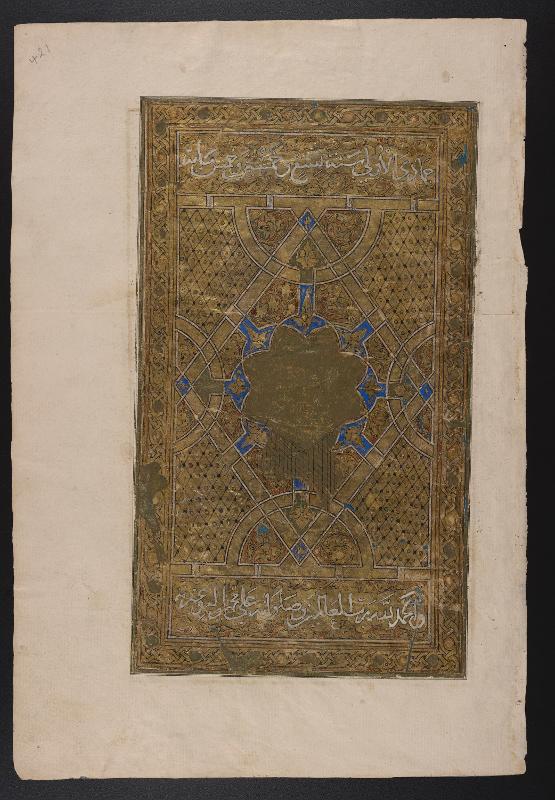 421
جمادى الاولى سنة تسع و خمسين و خمس مائة
والحمد لله رب العالمين و صلواته على محمد واله